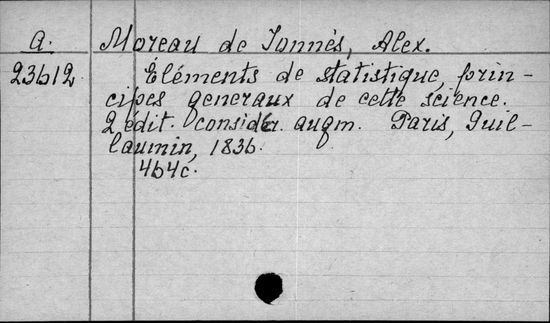 A. Moreau de Jonnès, Alex.
23612 Éléments de statistique, prin-
cipes generaux de cette science.
2 édit. considér. augm. Paris, Guil-
laumin, 1836.
464c.